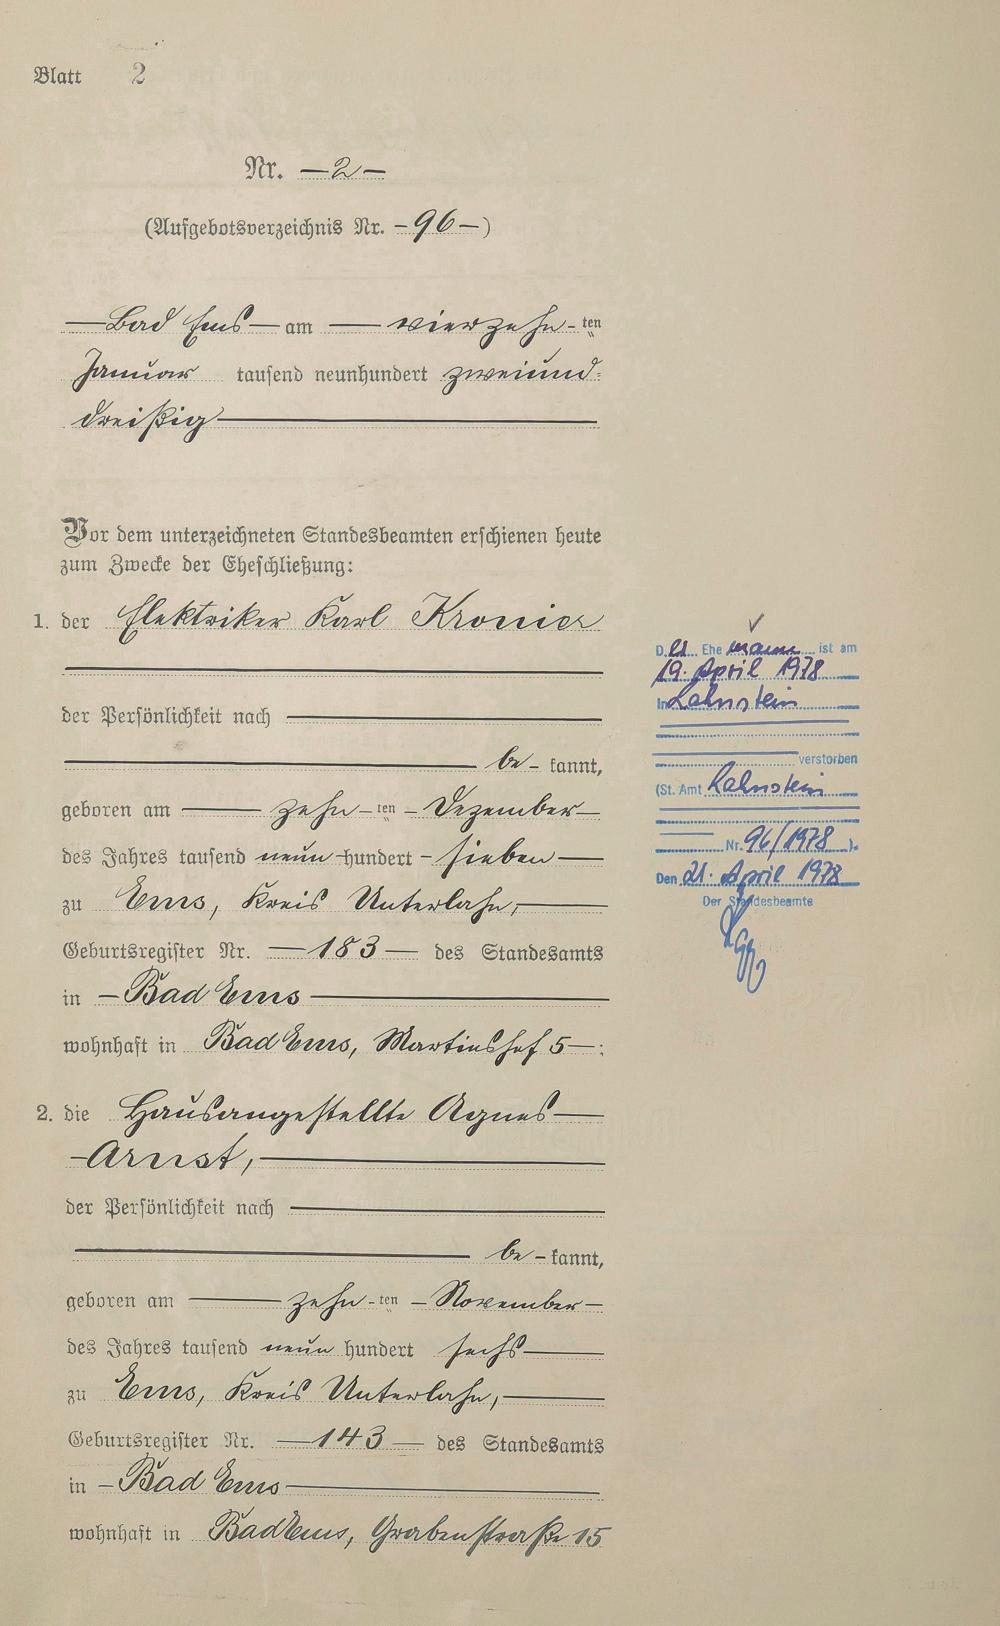 Blatt 2
Nr. — 2 —
(Aufgebotsverzeichnis Nr. – 96 – )
— Bad Ems — am — vierzehn - ten
Januar tausend neunhundert zweiund-
dreißig
Vor dem unterzeichneten Standesbeamten erschienen heute
zum Zwecke der Eheschließung:
1. der Elektriker Karl Kronier
der Persönlichkeit nach
be - kannt,
geboren am — zehn - ten - Dezember —
des Jahres tausend neun - hundert - sieben —
zu Ems, Kreis Unterlahn,
Geburtsregister Nr. — 183 — des Standesamts
in – Bad Ems —
wohnhaft in Bad Ems, Martinshof 5 — :
2. die Hausangestellte Agnes —
- Arnst, —
der Persönlichkeit nach
be - kannt,
geboren am — zehn - ten - November —
des Jahres tausend neun hundert sechs —
zu Ems, Kreis Unterlahn, —
Geburtsregister Nr. — 143 — des Standesamts
in – Bad Ems —
wohnhaft in Bad Ems, Grabenstraße 15
D. er Ehe mann ist am
19. April 1978
in Lahnstein
verstorben
(St. Amt Lahnstein
Nr. 96/1978 ).
Den 21. April 1978
Der Standesbeamte